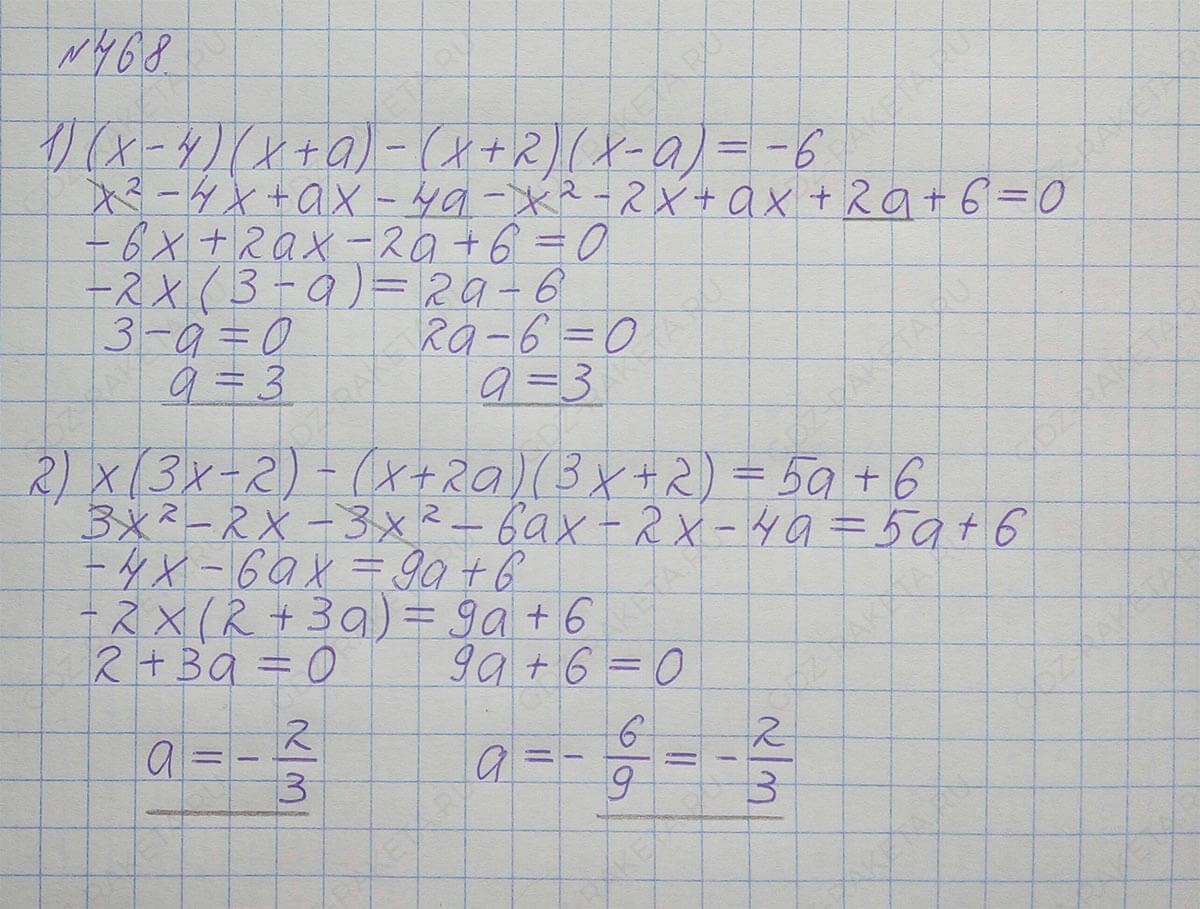 №468.
1) (x-4)(x+a)-(x+2)(x-a)=-6
x²-4x+ax-4a-x²-2x+ax+2a+6=0
-6x+2ax-2a+6=0
-2x(3-a)=2a-6
3-a=0 2a-6=0
a=3 a=3
2) x(3x-2)-(x+2a)(3x+2)=5a+6
3x²-2x-3x²-6ax-2x-4a=5a+6
-4x-6ax=9a+6
-2x(2+3a)=9a+6
2+3a=0 9a+6=0
a=-2/3 a=-6/9=-2/3
GDZ-RAKETA.RU